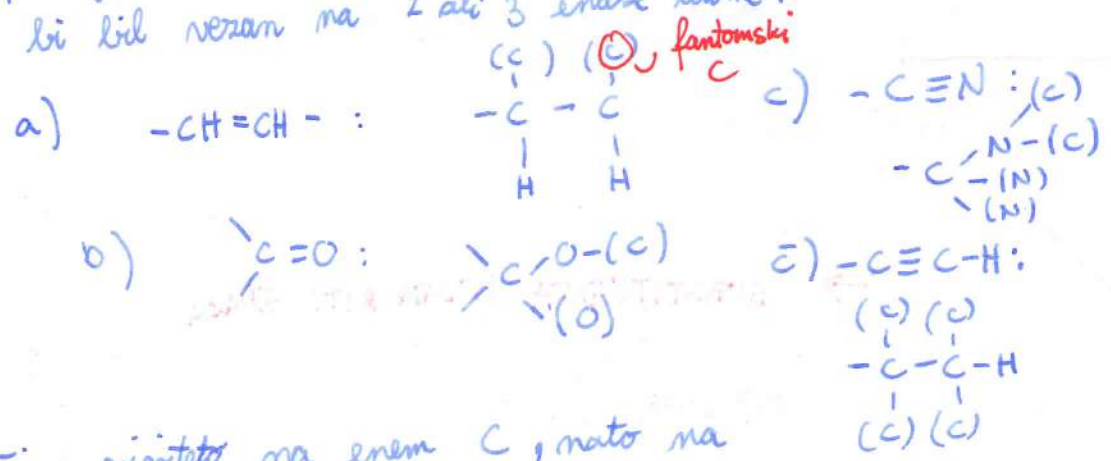 bi bil vezan na 2 ali 3 enake
(C) (C) fantomski C
a) -CH=CH- : -C-C
H H
b) C=O : C O-(C)
(O)
c) -C≡N : (C)
N-(C)
-C-(N)
(N)
č) -C≡C-H:
(C) (C)
-C-C-H
(C) (C)
na enem C, nato na